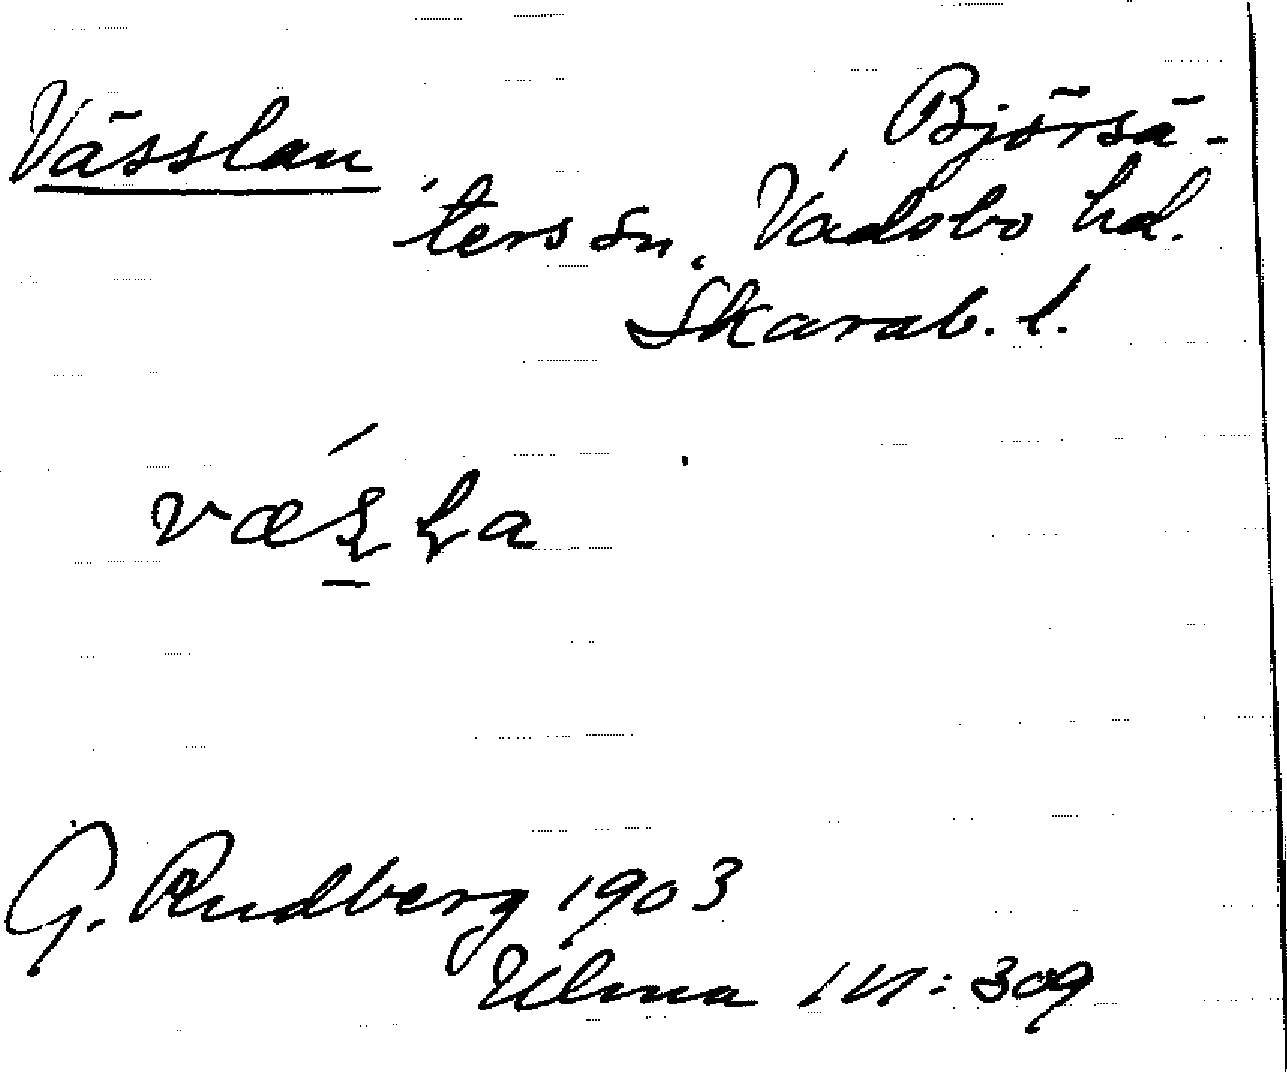 Vässlan
Björsä-
ters sn, Vadsbo hd.
Skarab. l.
G. Rudberg 1903
Ulma 141:309